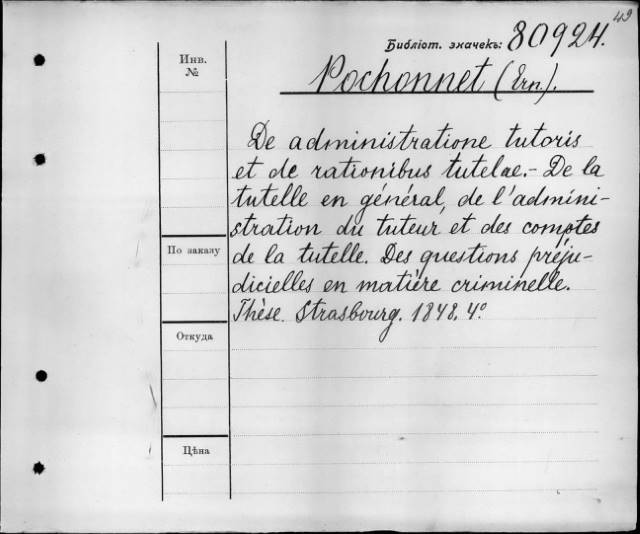 49
Библіот. значекъ: 80924.
Инв.
№
Pochonnet (Ern).
De administratione tutoris
et de rationibus tutelae. - De la
tutelle en général, de l'admini-
stration du tuteur et des comptes
de la tutelle. Des questions préju-
dicielles en matière criminelle.
Thèse. Strasbourg. 1848. 4°
По заказу
Откуда
Цѣна